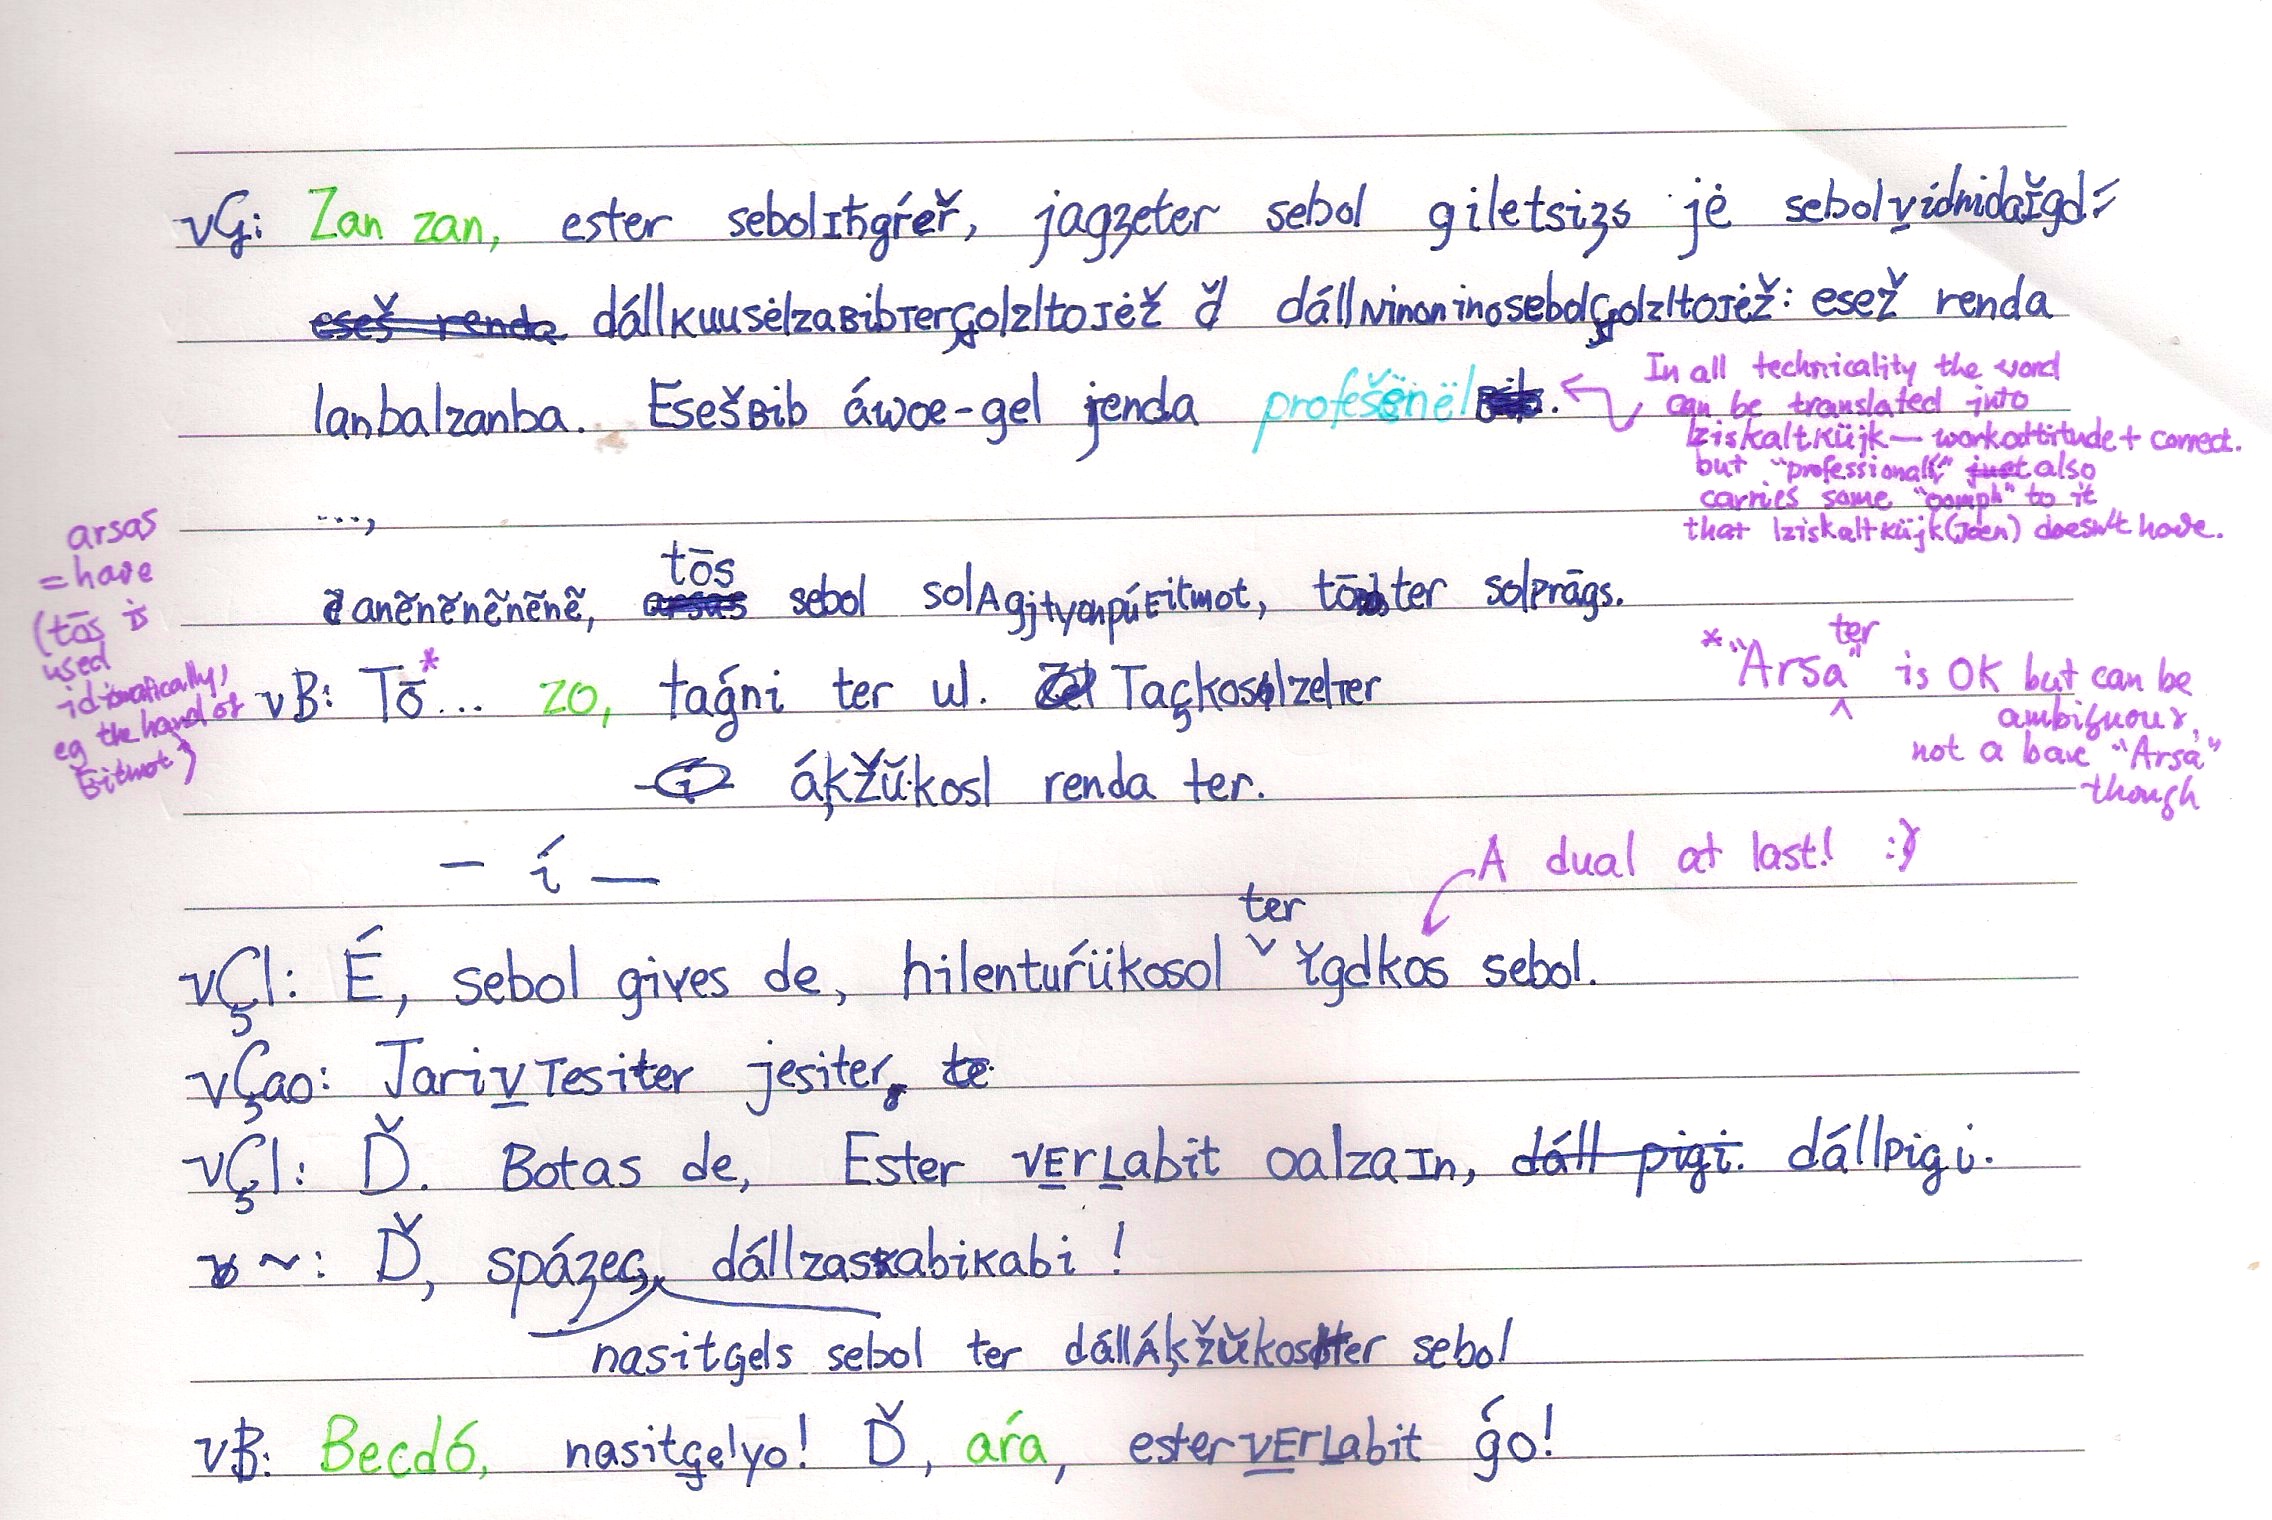 vG: Zan zan, ester sebolIħgŕeř, jagzeter sebol giletsizs jė sebolvídnidaǏgd=
eseš renda dállKuusėlzaBibTerÇolzltoJėž ď dállNinoninosebolÇolzltoJėž: esež renda
lanbalzanba. EsešBib áwoe-gel jenda profešënël.
In all technicality the word
can be translated into
lziskaltKüjk — workattitude + correct.
but "professional" just also
carries some "oomph" to it
that lziskaltKüjk(Joen) doesn't have.
...,
arsas
= have
(tōs is
used
idiomatically,
eg the hand of
Eitmot)
tōs
ẽ anẽnẽnẽnẽnẽ, arsas sebol solAgjtyonpúEitmot, tōter solPrāgs.
vB: Tō*... zo, taǵni ter ul. Taçkoslzelter
*"Arsa ter" is OK but can be
ambiguous,
not a bare "Arsa"
though
áķŽŭkosl renda ter.
— í —
A dual at last! :)
ter
vÇl: É, sebol gives de, hilenturükosol ˅ ǐgdkos sebol.
vÇao: JarivTesiter jesiter, te
vÇl: Ď. Botas de, Ester vErLabit oalzaIn, dáll pigi. dállpigi.
v ~: Ď, spázeç, dállzaskabiKabi !
nasitçels sebol ter dállÁķžŭkoslter sebol
vB: Becdó, nasitçelyo! Ď, aŕa, estervErLabit ǵo!